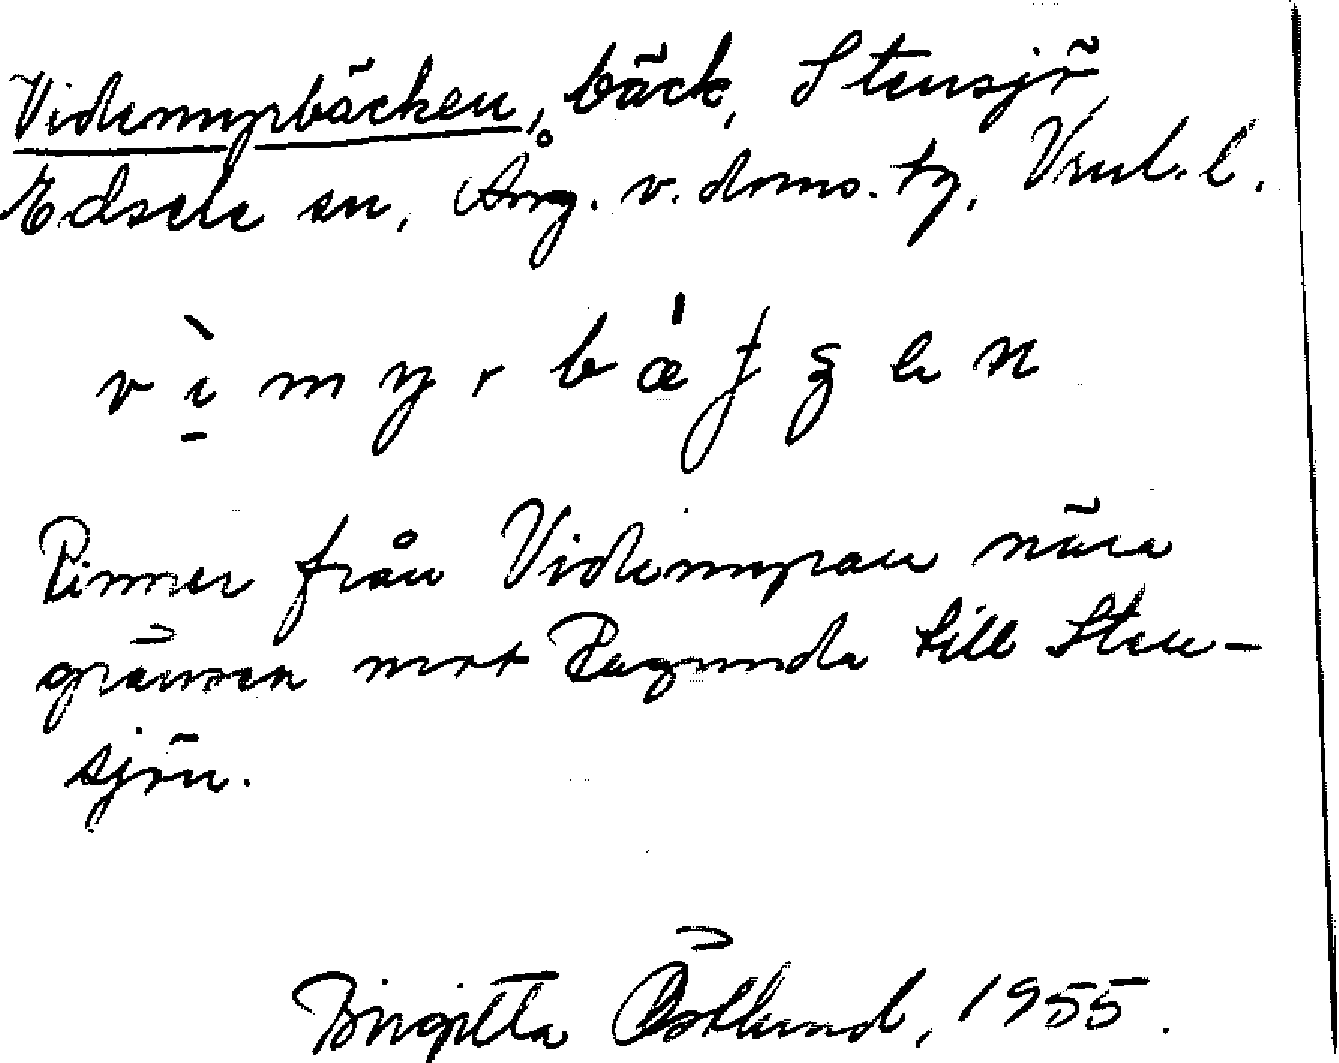 Videmyrbäcken, bäck, Stensjö,
Edsele sn, Ång. v. doms. tg, Vnl. l.
v ì̱ m y r b æ̍ ʄ ʒ e n
Rinner från Videmyran nära
gränsen mot Ragunda till Sten-
sjön.
Birgitta Östlund, 1955.